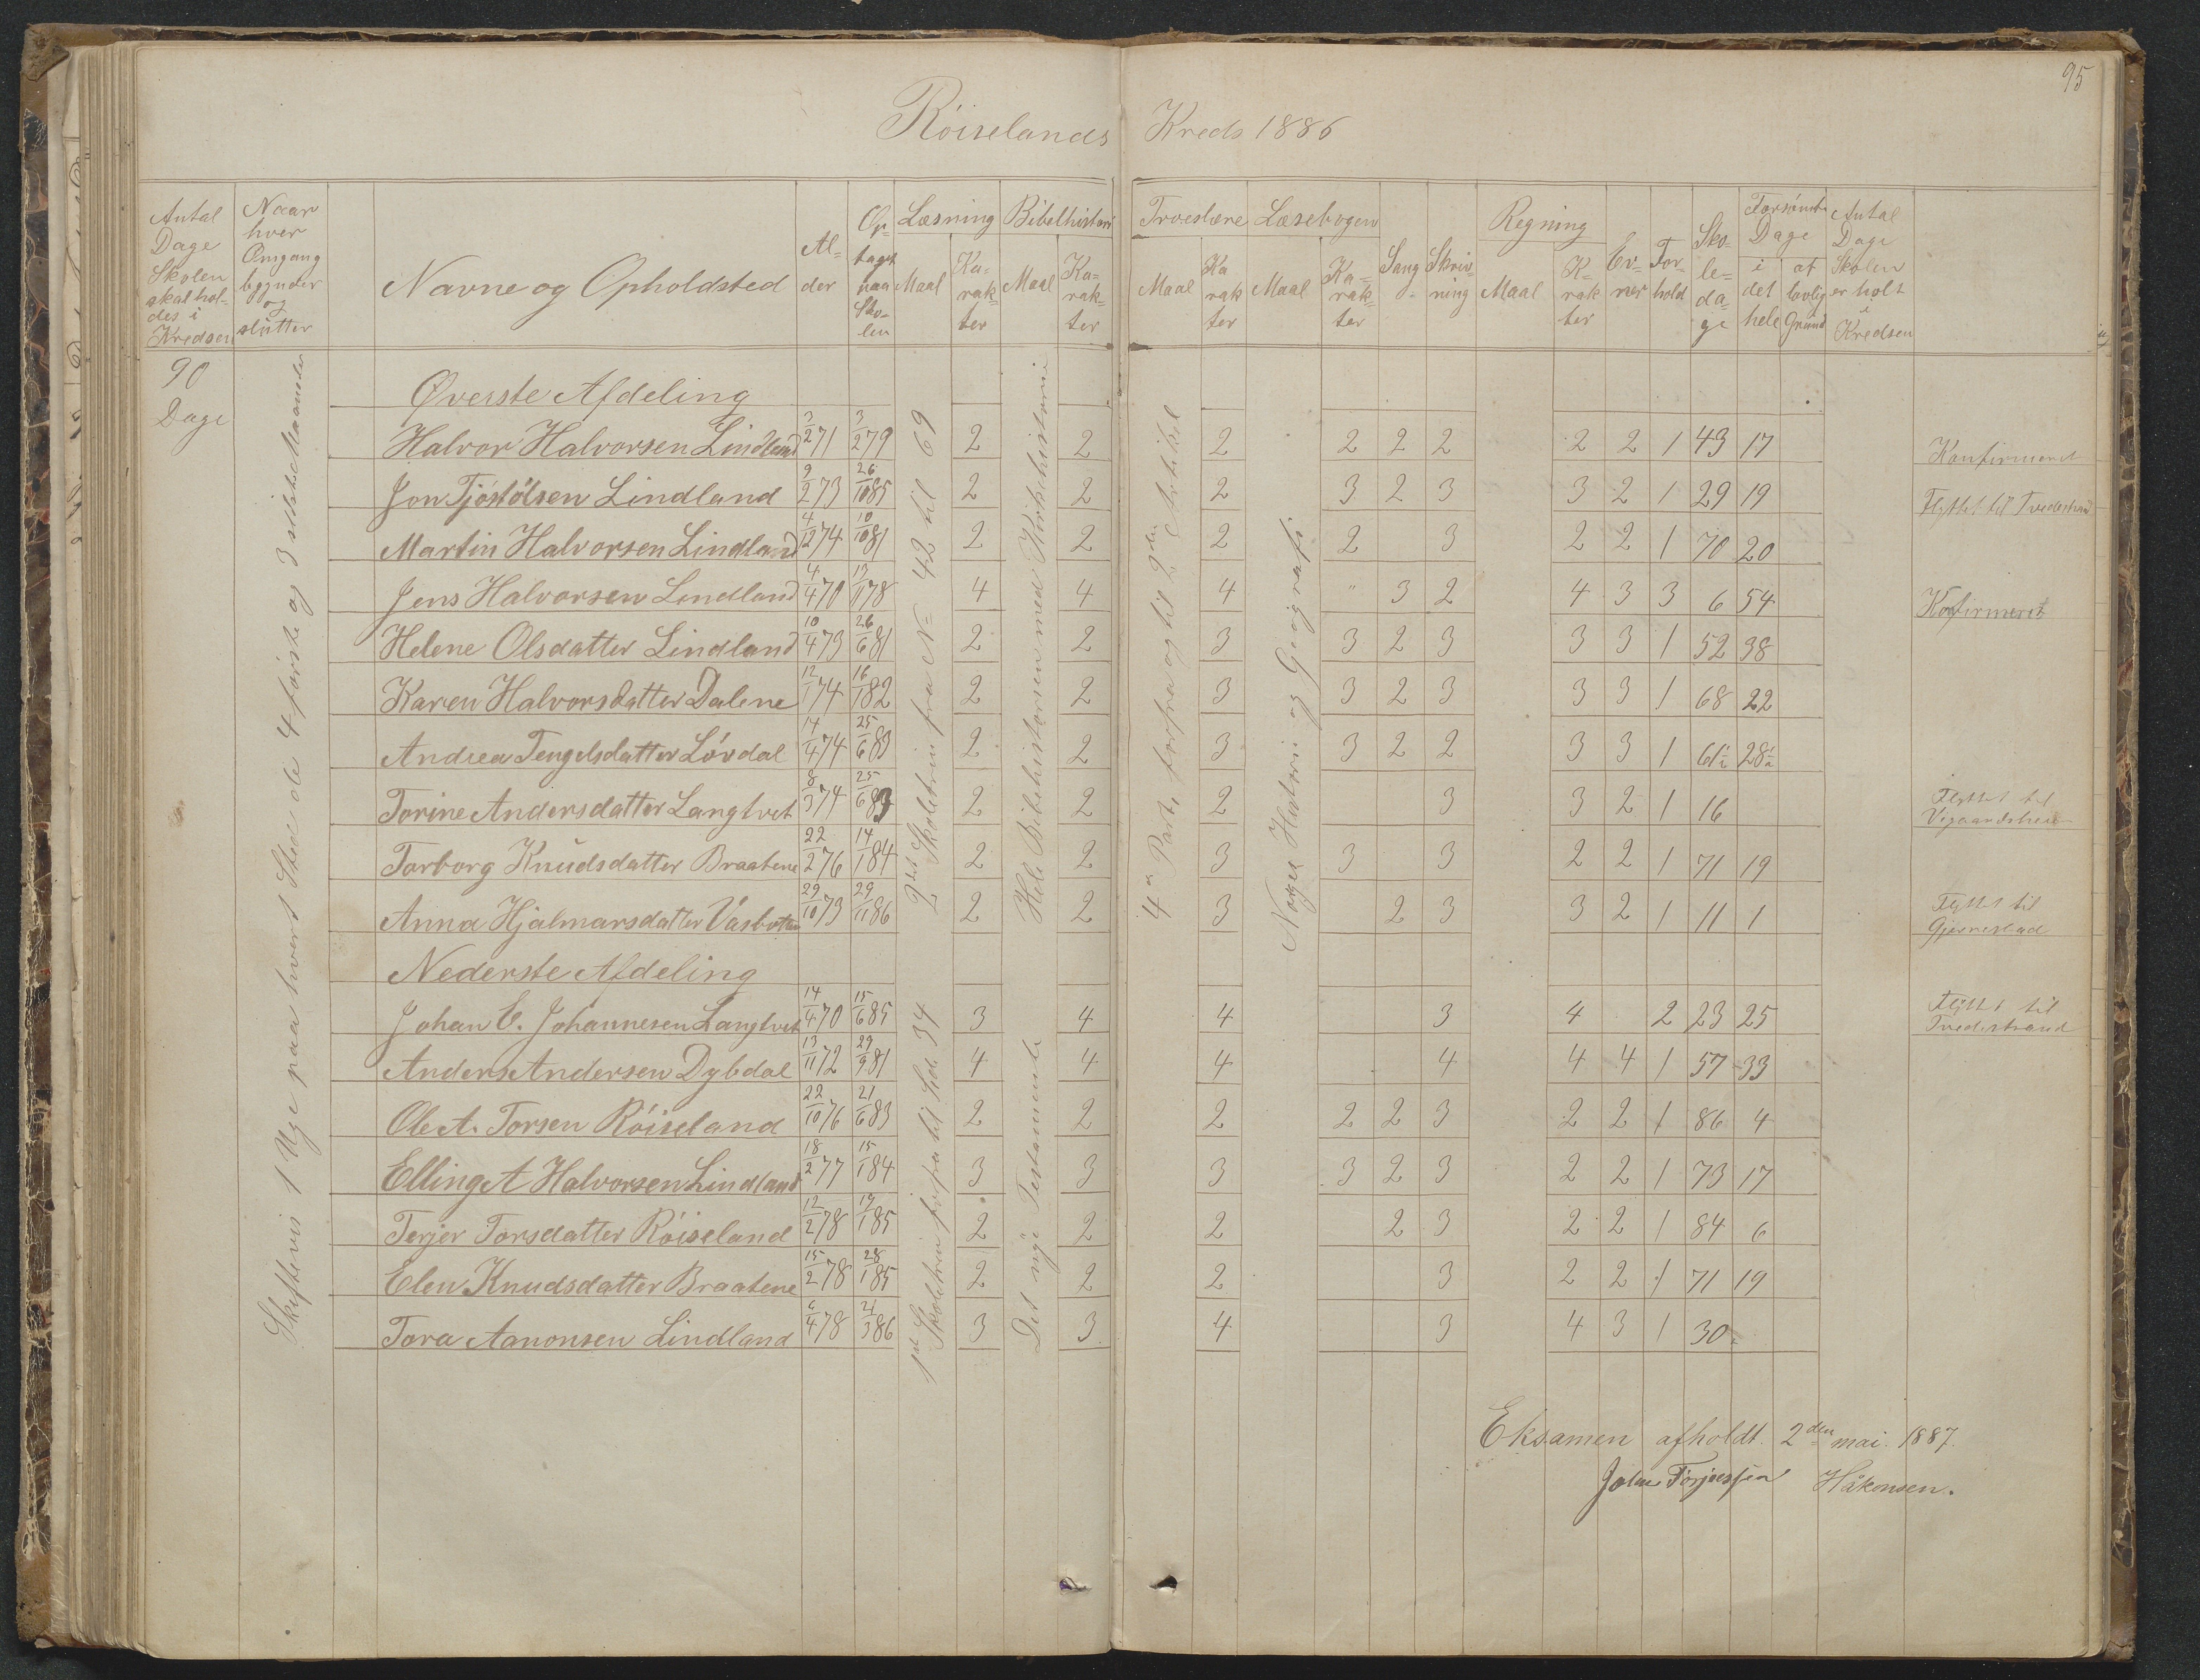 95
Röiselands Kreds 1886
Antal Dage Skolen skal holdes i Kredsen
Naar hver Omgang begynder og slutter
Navne og Opholdsted
Alder
Optaget paa Skolen
Læsning Maal Karakter
Bibelhistori Maal Karakter
Troeslære Maal Karakter
Læsebogen Maal Karakter
Sang
Skrivning
Regning Maal Karakter
Evner
Forhold
Skoledage
Forsömte Dage i det hele af lovlig Grund
Antal Dage Skolen er holt i Kredsen
90 Dage
Skiftevis 1 Uge paa hvert Sted de 4 første og 3 sidste Maaneder
2det Skoletrin fra No 42 til 69
Hele Bibelhistorien med Kirkehistorie
4de Part, forfra og til 2den Artikel
Norges Historie og Geografi
Øverste Afdeling
Halvor Halvorsen Lindland 3/2 71 3/2 79 2 2 2 2 2 2 2 2 1 43 17 Konfirmeret
Jon Tjöstölsen Lindland 9/2 73 26/10 85 2 2 2 3 2 3 3 2 1 29 19 Flyttet til Tvedestrand
Martin Halvorsen Lindland 4/12 74 10/10 81 2 2 2 2 3 2 2 1 70 20
Jens Halvorsen Lindland 4/4 70 13/1 78 4 4 4 " 3 2 4 3 3 6 54 Kofirmeret
Helene Olsdatter Lindland 10/4 73 26/6 81 2 2 3 3 2 3 3 3 1 52 38
Karen Halvorsdatter Dalene 12/1 74 16/1 82 2 2 3 3 2 3 3 3 1 68 22
Andrea Tengelsdatter Lövdal 14/4 74 25/6 83 2 2 3 3 2 2 3 3 1 61½ 28½
Torine Andersdatter Langtvet 8/3 74 25/6 83 2 2 2 3 3 2 1 16 Flyttet til Vigaardsheie
Torborg Knudsdatter Braatene 22/2 76 14/1 84 2 2 3 3 3 2 2 1 71 19
Anna Hjalmarsdatter Vasbotten 29/10 73 29/11 86 2 2 3 2 3 3 2 1 11 1 Flyttet til Gjerrestad
Nederste Afdeling
1ste Skoletrin forfra til Sid. 34
Det nye Testamente
Johan E. Johannesen Langtvet 14/4 70 15/6 85 3 4 4 3 4 2 23 25 Flyttet til Tvedestrand
Anders Andersen Dybdal 13/11 72 29/9 81 4 4 4 4 4 4 1 57 33
Ole A. Torsen Röiseland 22/10 76 21/6 83 2 2 2 2 2 3 2 2 1 86 4
Elling A Halvorsen Lindland 18/2 77 15/1 84 3 3 3 3 2 3 2 2 1 73 17
Terjer Torsdatter Röiseland 12/2 78 19/1 85 2 2 2 2 3 2 2 1 84 6
Elen Knudsdatter Braatene 15/2 78 28/1 85 2 2 2 3 2 2 1 71 19
Tora Aanonsen Lindland 6/4 78 21/3 86 3 3 4 3 4 3 1 30
Eksamen afholdt 2den mai 1887.
Torjussen Håkonsen.